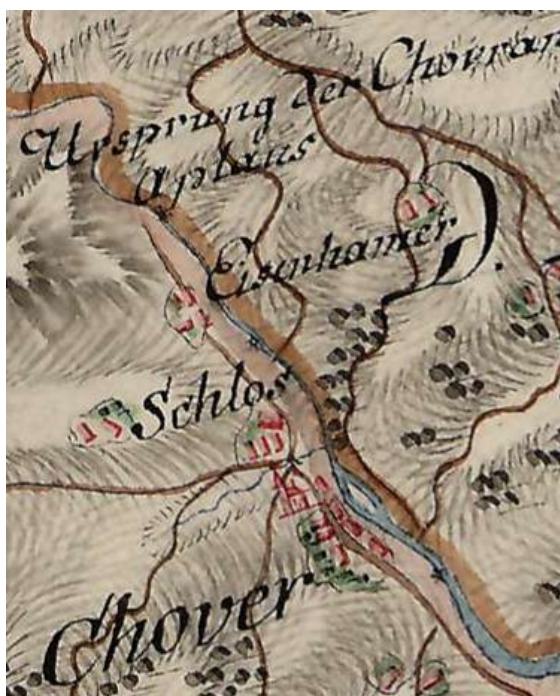 Ursprung der Chovran
Aplaus
Eisenhamer
D.
Schlos
Chover